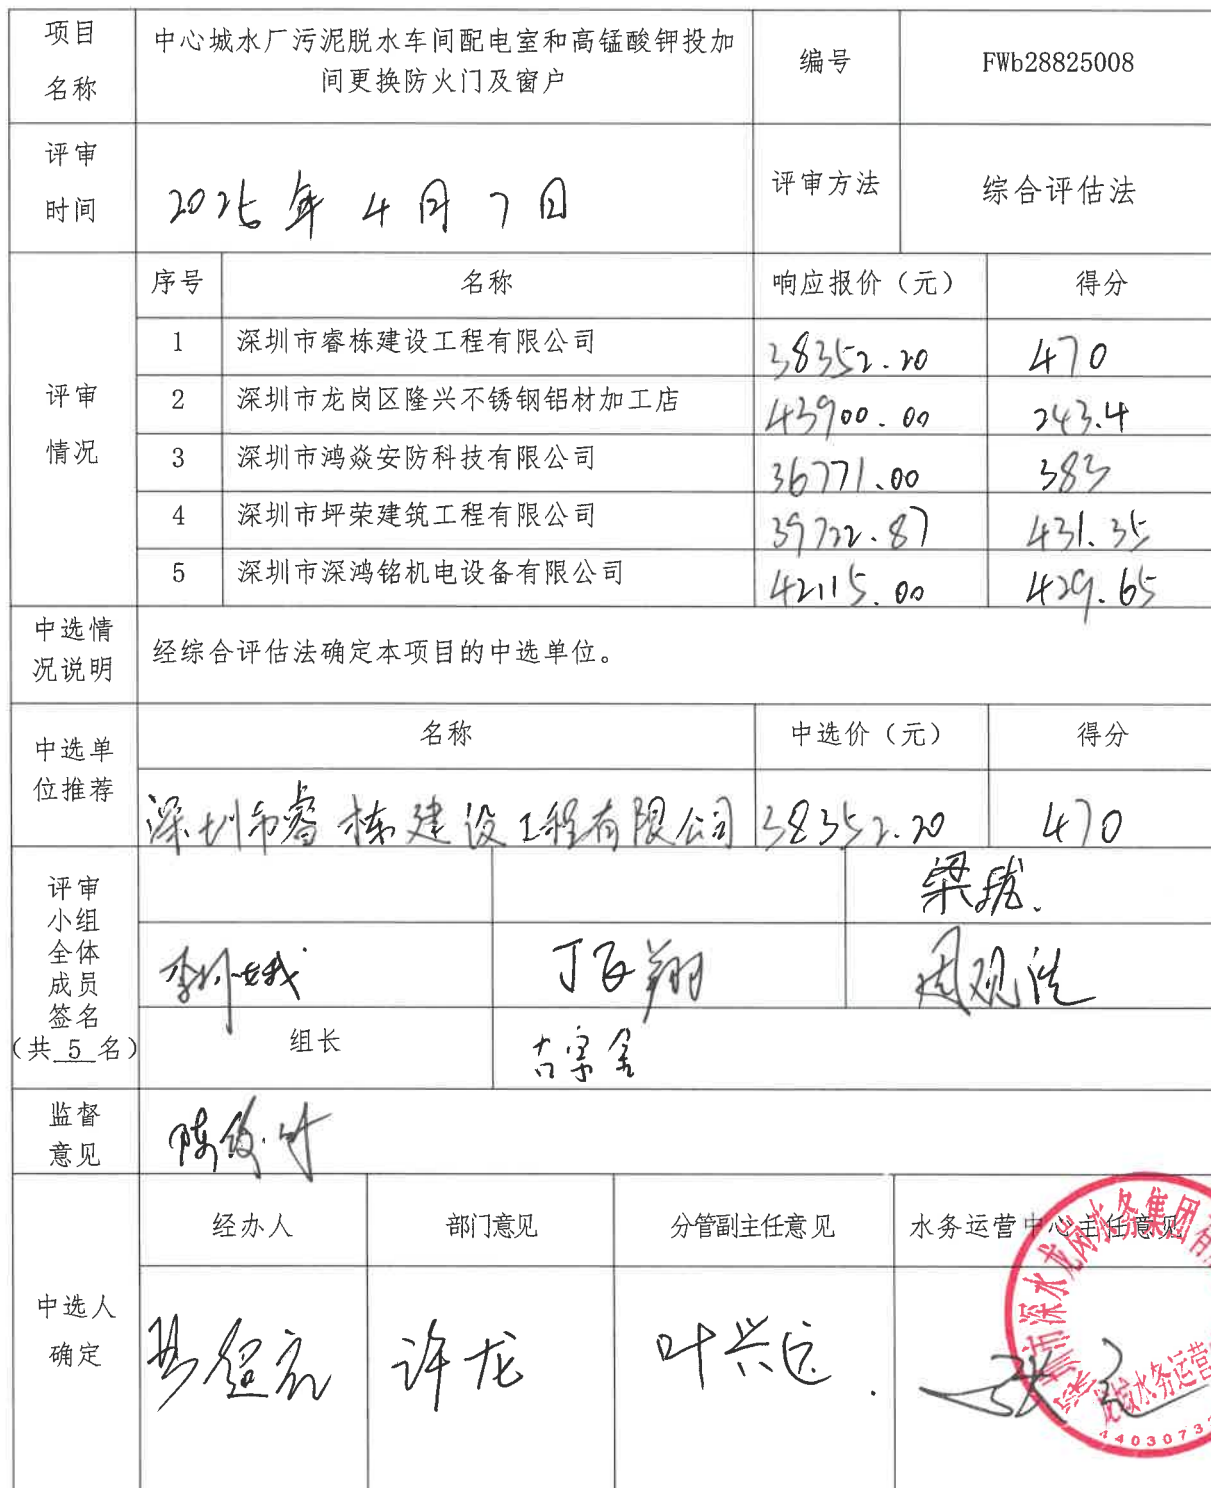 项目名称 中心城水厂污泥脱水车间配电室和高锰酸钾投加间更换防火门及窗户 编号 FWb28825008
评审时间 2025年4月7日 评审方法 综合评估法
评审情况 序号 名称 响应报价（元） 得分
1 深圳市睿栋建设工程有限公司 38352.20 470
2 深圳市龙岗区隆兴不锈钢铝材加工店 43900.00 243.4
3 深圳市鸿焱安防科技有限公司 36771.00 383
4 深圳市坪荣建筑工程有限公司 39722.87 431.35
5 深圳市深鸿铭机电设备有限公司 42115.00 429.65
中选情况说明 经综合评估法确定本项目的中选单位。
中选单位推荐 名称 中选价（元） 得分
深圳市睿栋建设工程有限公司 38352.20 470
评审小组全体成员签名（共 5 名）
梁
丁 翔 周观
组长
监督意见 陈
中选人确定 经办人 部门意见 分管副主任意见 水务运营中心主任意见
许龙 叶兴
深圳市深水龙岗水务集团有
龙城水务运营
4403073